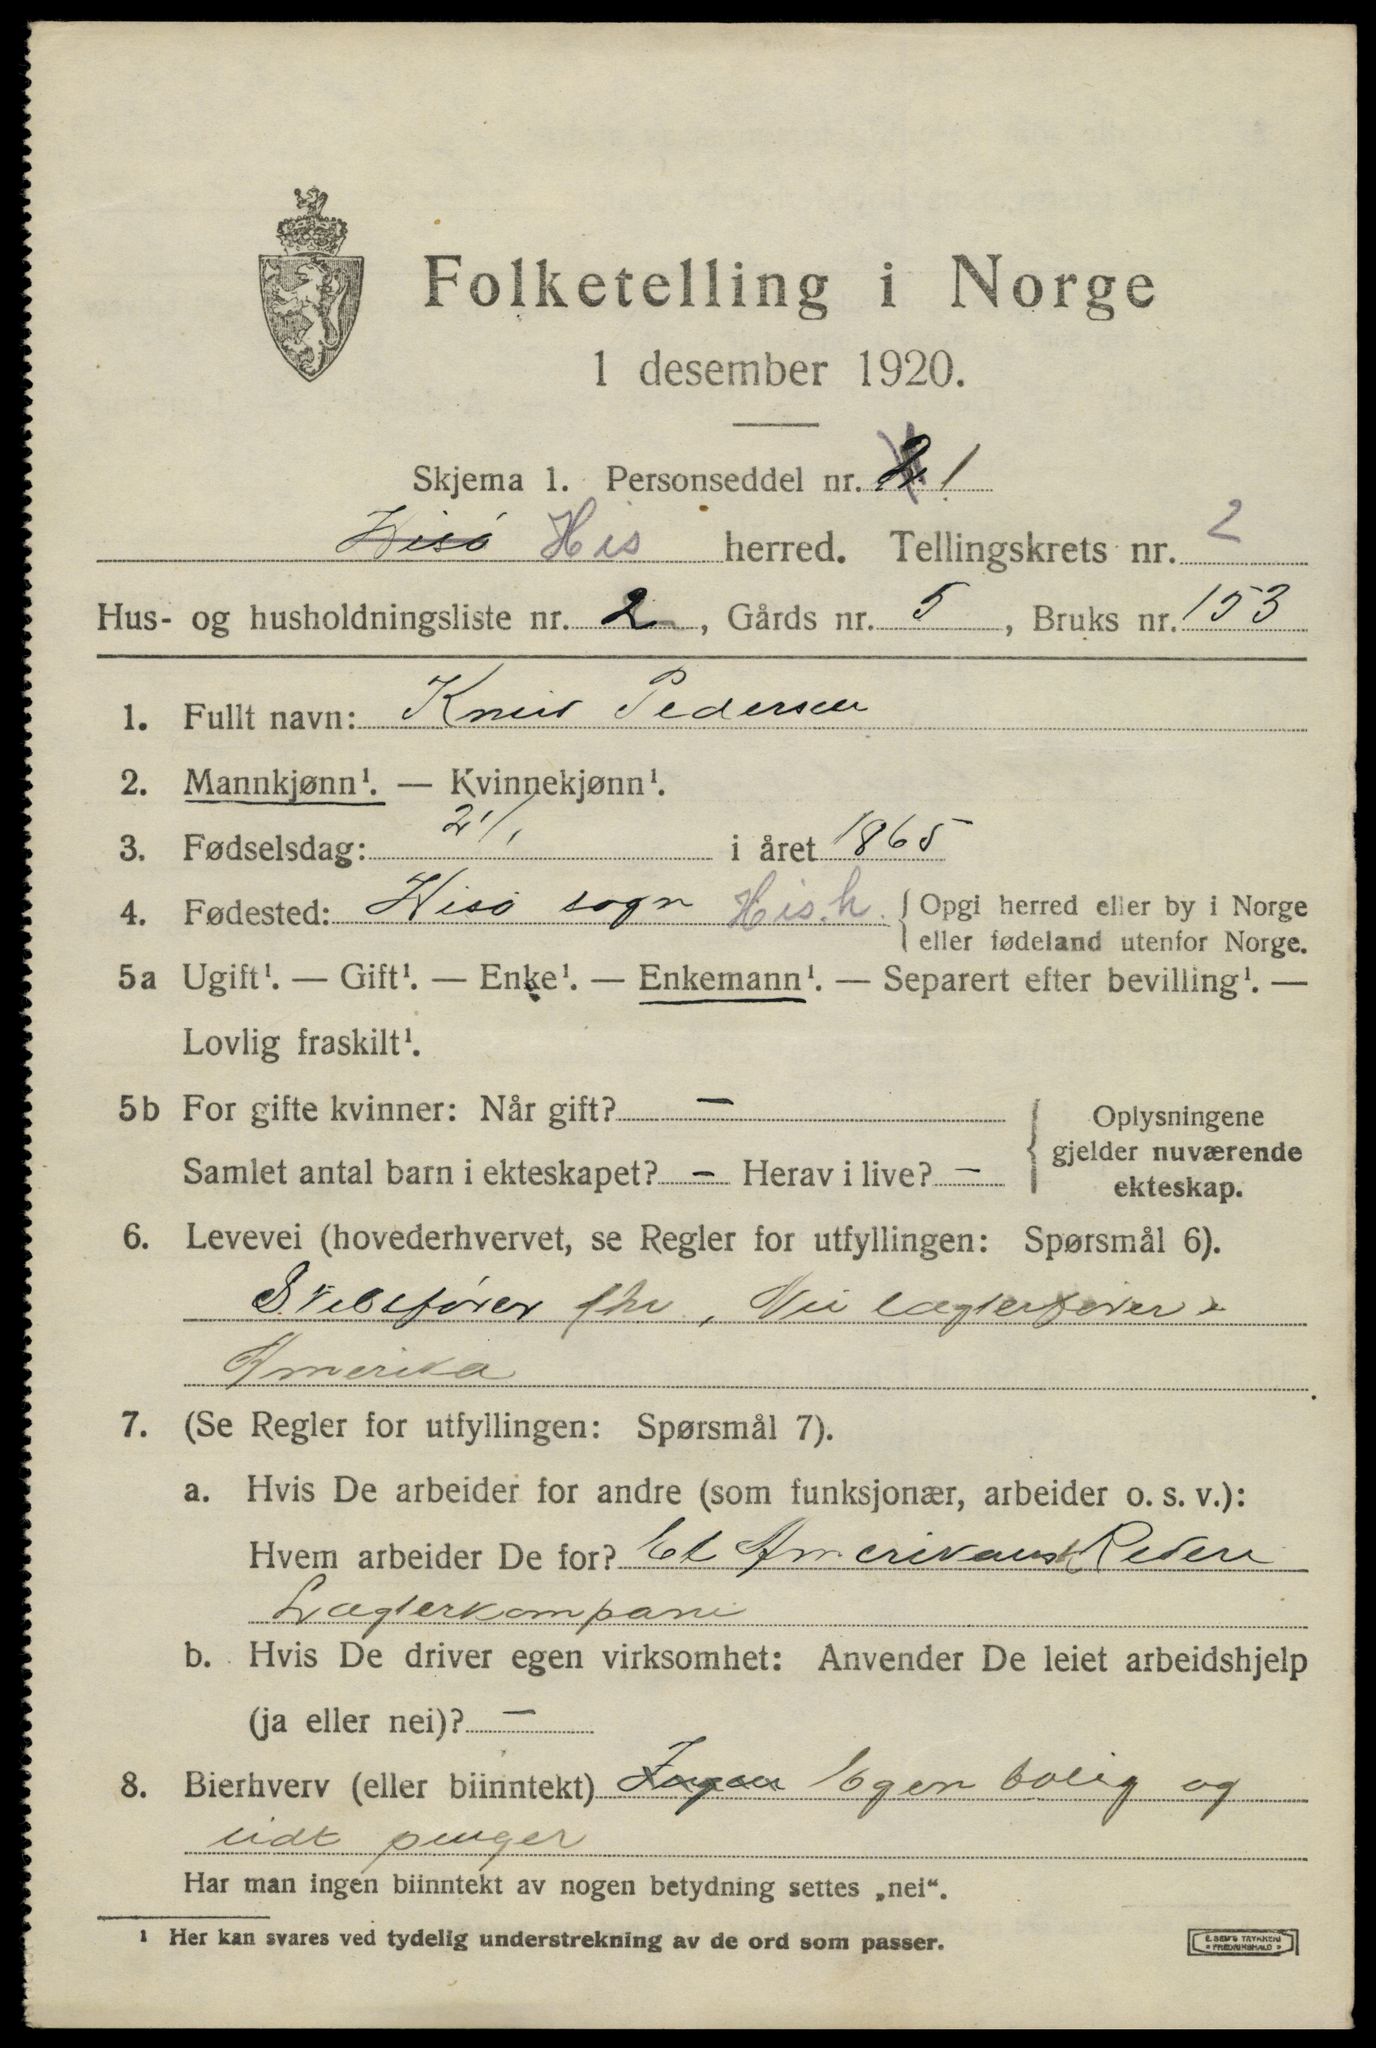 Folketelling i Norge
1 desember 1920.
Skjema 1. Personseddel nr. 2 1
Hisö His herred. Tellingskrets nr. 2
Hus- og husholdningsliste nr. 2, Gårds nr. 5, Bruks nr. 153
1. Fullt navn: Knut Pedersen
2. Mannkjønn¹. — Kvinnekjønn¹.
3. Fødselsdag: 2/1 i året 1865
4. Fødested: Hisö sogn His.h. { Opgi herred eller by i Norge
eller fødeland utenfor Norge.
5a Ugift¹. — Gift¹. — Enke¹. — Enkemann¹. — Separert efter bevilling¹. —
Lovlig fraskilt¹.
5b For gifte kvinner: Når gift? —
Samlet antal barn i ekteskapet? — Herav i live? —
{ Oplysningene
gjelder nuværende
ekteskap.
6. Levevei (hovederhvervet, se Regler for utfyllingen: Spørsmål 6).
Skibsfører lægterfører i
Amerika
7. (Se Regler for utfyllingen: Spørsmål 7).
a. Hvis De arbeider for andre (som funksjonær, arbeider o. s. v.):
Hvem arbeider De for? Et Amerikansk Rederi
Lægterkompani
b. Hvis De driver egen virksomhet: Anvender De leiet arbeidshjelp
(ja eller nei)? —
8. Bierhverv (eller biinntekt) Ingen Egen bolig og
lidt penger
Har man ingen biinntekt av nogen betydning settes „nei“.
¹ Her kan svares ved tydelig understrekning av de ord som passer.
E. SEM'S TRYKKERI
FREDRIKSHALD